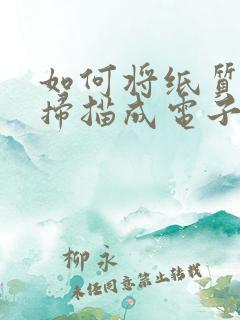 如何将纸质
掃描成電子
柳永
未经同意禁止转载